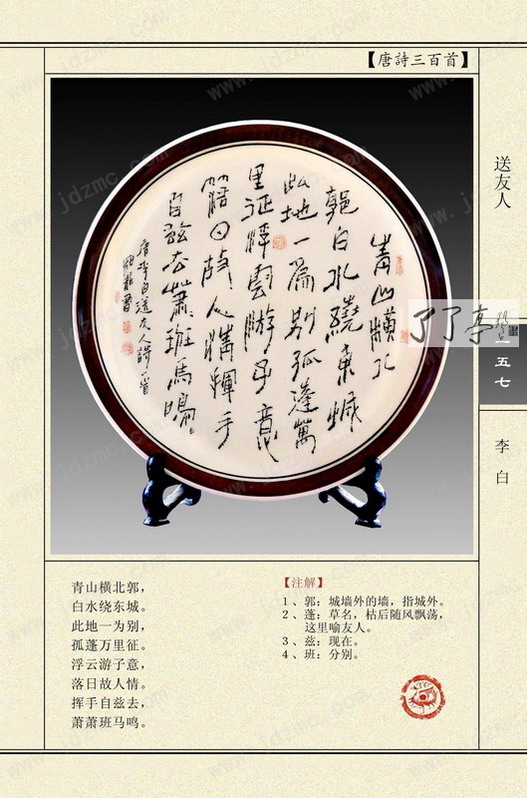 【唐詩三百首】
送友人
一五七
李白
青山横北
郭白水繞東城
此地一為别孤蓬萬
里征浮雲游子意
落日故人情揮手
自兹去蕭班馬鳴
唐李白送友人詩一首
了了亭
青山横北郭，
白水绕东城。
此地一为别，
孤蓬万里征。
浮云游子意，
落日故人情。
挥手自兹去，
萧萧班马鸣。
【注解】
1、郭：城墙外的墙，指城外。
2、蓬：草名，枯后随风飘荡，
这里喻友人。
3、兹：现在。
4、班：分别。
www.jdzmc.com